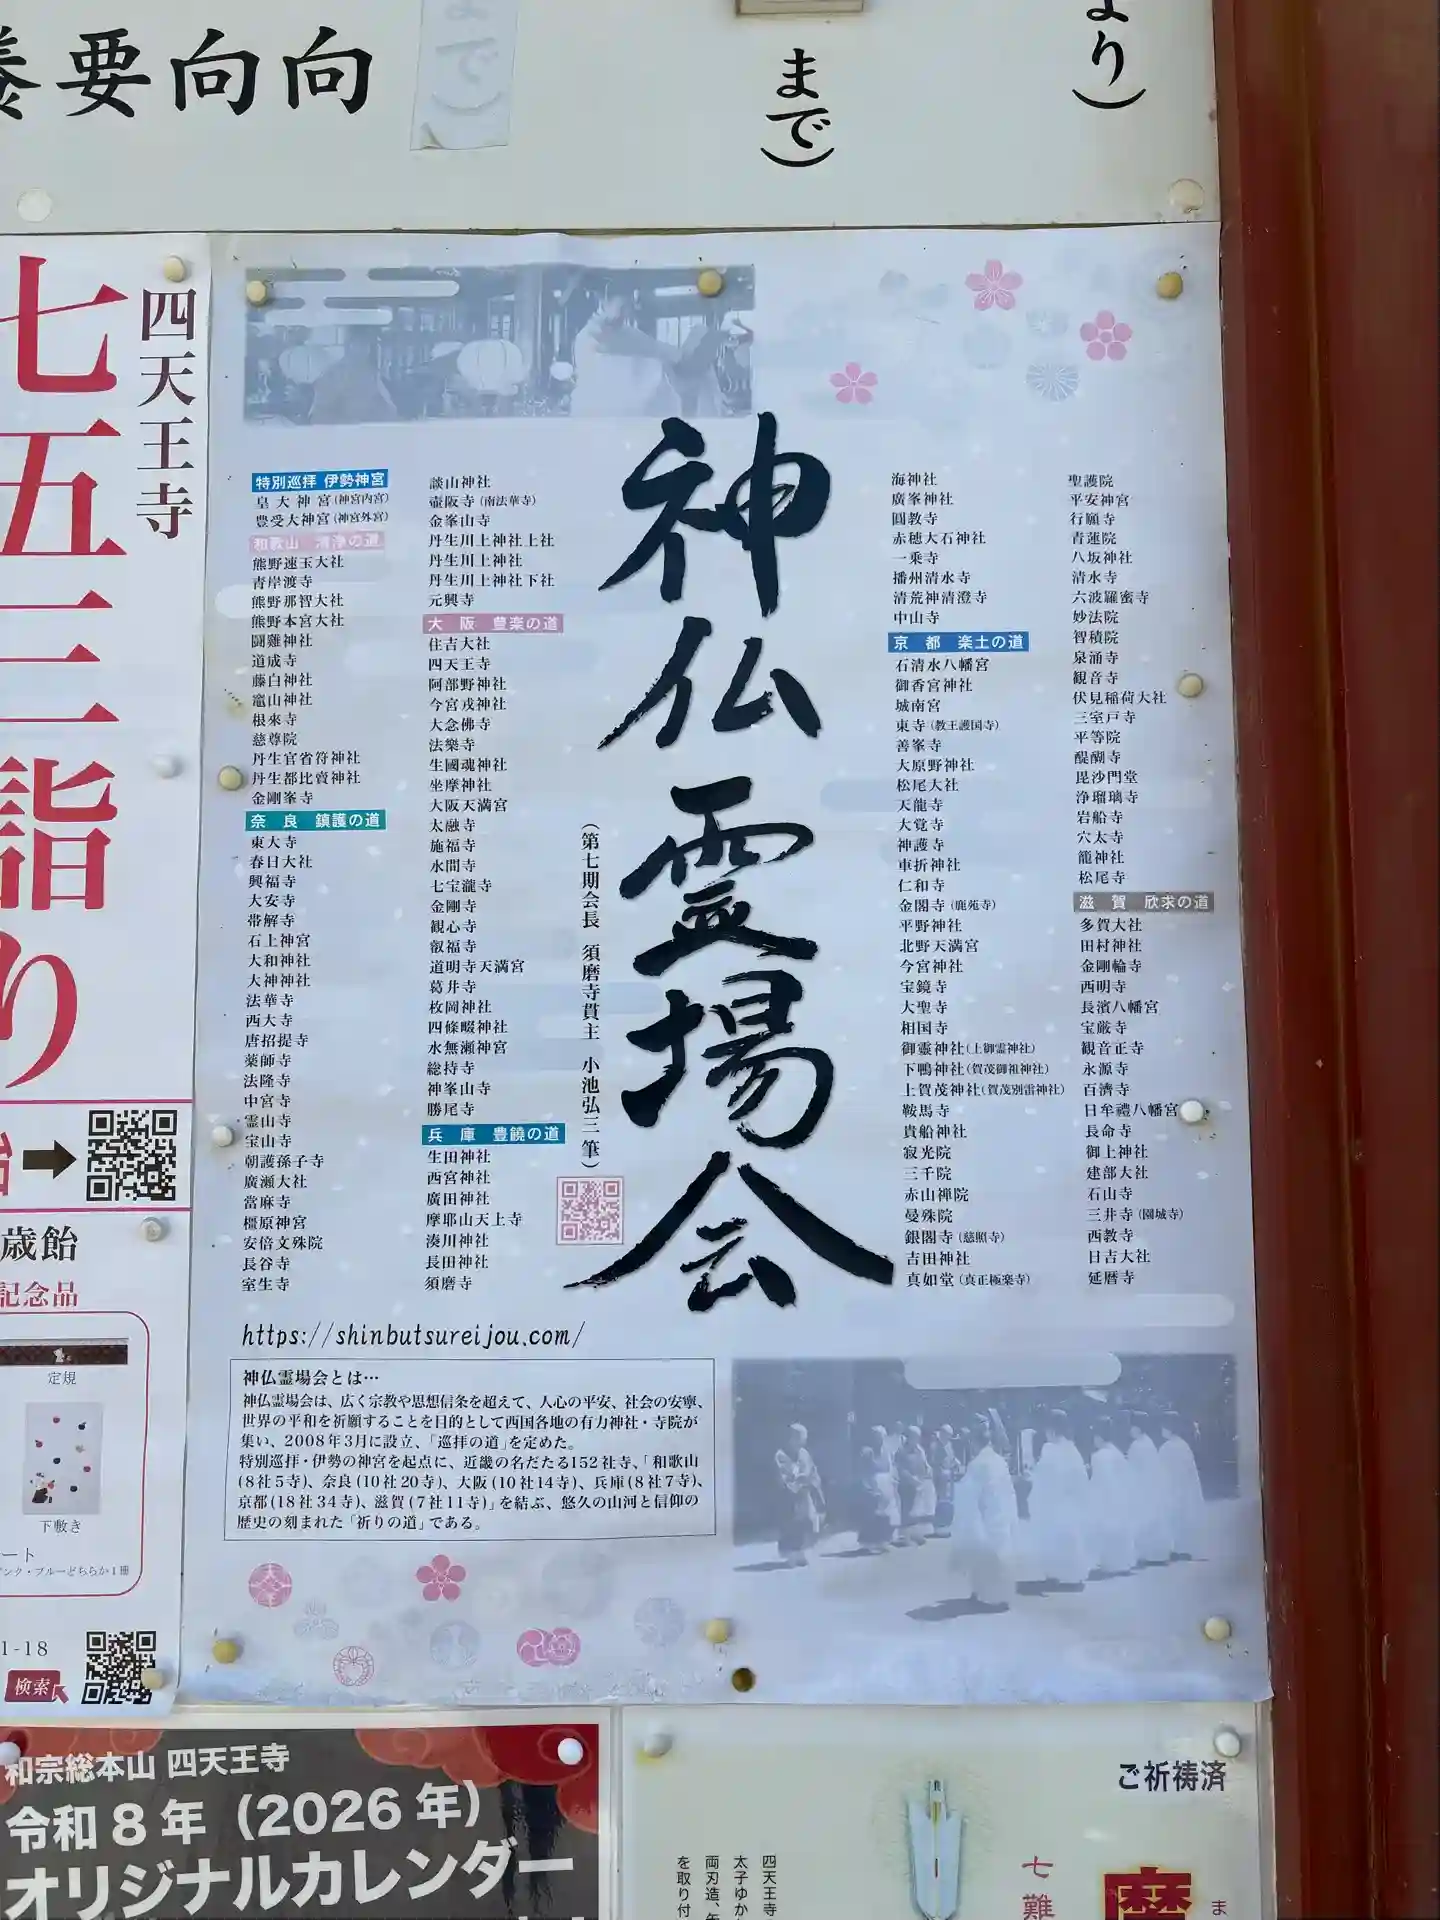 養要向向
まで）
まで）
より）
四天王寺
七五三詣り
歳飴
記念品
定規
下敷き
ート
ンク・ブルーどちらか1冊
1-18
検索
特別巡拝 伊勢神宮
皇大神宮(神宮内宮)
豊受大神宮(神宮外宮)
和歌山 清浄の道
熊野速玉大社
青岸渡寺
熊野那智大社
熊野本宮大社
闘雞神社
道成寺
藤白神社
竈山神社
根來寺
慈尊院
丹生官省符神社
丹生都比賣神社
金剛峯寺
奈良 鎮護の道
東大寺
春日大社
興福寺
大安寺
帯解寺
石上神宮
大和神社
大神神社
法華寺
西大寺
唐招提寺
薬師寺
法隆寺
中宮寺
霊山寺
宝山寺
朝護孫子寺
廣瀬大社
當麻寺
橿原神宮
安倍文殊院
長谷寺
室生寺
談山神社
壷阪寺(南法華寺)
金峯山寺
丹生川上神社上社
丹生川上神社
丹生川上神社下社
元興寺
大阪 豊楽の道
住吉大社
四天王寺
阿部野神社
今宮戎神社
大念佛寺
法樂寺
生國魂神社
坐摩神社
大阪天満宮
太融寺
施福寺
水間寺
七宝瀧寺
金剛寺
観心寺
叡福寺
道明寺天満宮
葛井寺
枚岡神社
四條畷神社
水無瀬神宮
総持寺
神峯山寺
勝尾寺
兵庫 豊饒の道
生田神社
西宮神社
廣田神社
摩耶山天上寺
湊川神社
長田神社
須磨寺
神仏霊場会
（第七期会長 須磨寺貫主 小池弘三 筆）
海神社
廣峯神社
圓教寺
赤穂大石神社
一乗寺
播州清水寺
清荒神清澄寺
中山寺
京都 楽土の道
石清水八幡宮
御香宮神社
城南宮
東寺(教王護国寺)
善峯寺
大原野神社
松尾大社
天龍寺
大覚寺
神護寺
車折神社
仁和寺
金閣寺(鹿苑寺)
平野神社
北野天満宮
今宮神社
宝鏡寺
大聖寺
相国寺
御靈神社(上御霊神社)
下鴨神社(賀茂御祖神社)
上賀茂神社(賀茂別雷神社)
鞍馬寺
貴船神社
寂光院
三千院
赤山禅院
曼殊院
銀閣寺(慈照寺)
吉田神社
真如堂(真正極楽寺)
聖護院
平安神宮
行願寺
青蓮院
八坂神社
清水寺
六波羅蜜寺
妙法院
智積院
泉涌寺
観音寺
伏見稲荷大社
三室戸寺
平等院
醍醐寺
毘沙門堂
浄瑠璃寺
岩船寺
穴太寺
籠神社
松尾寺
滋賀 欣求の道
多賀大社
田村神社
金剛輪寺
西明寺
長濱八幡宮
宝厳寺
観音正寺
永源寺
百濟寺
日牟禮八幡宮
長命寺
御上神社
建部大社
石山寺
三井寺(園城寺)
西教寺
日吉大社
延暦寺
https://shinbutsureijou.com/
神仏霊場会とは…
神仏霊場会は、広く宗教や思想信条を超えて、人心の平安、社会の安寧、
世界の平和を祈願することを目的として西国各地の有力神社・寺院が
集い、2008年3月に設立、「巡拝の道」を定めた。
特別巡拝・伊勢の神宮を起点に、近畿の名だたる152社寺、「和歌山
(8社5寺)、奈良(10社20寺)、大阪(10社14寺)、兵庫(8社7寺)、
京都(18社34寺)、滋賀(7社11寺)」を結ぶ、悠久の山河と信仰の
歴史の刻まれた「祈りの道」である。
和宗総本山 四天王寺
令和8年（2026年）
オリジナルカレンダー
ご祈祷済
四天王寺
太子ゆか
両刃造、
を取り付
七難
ま